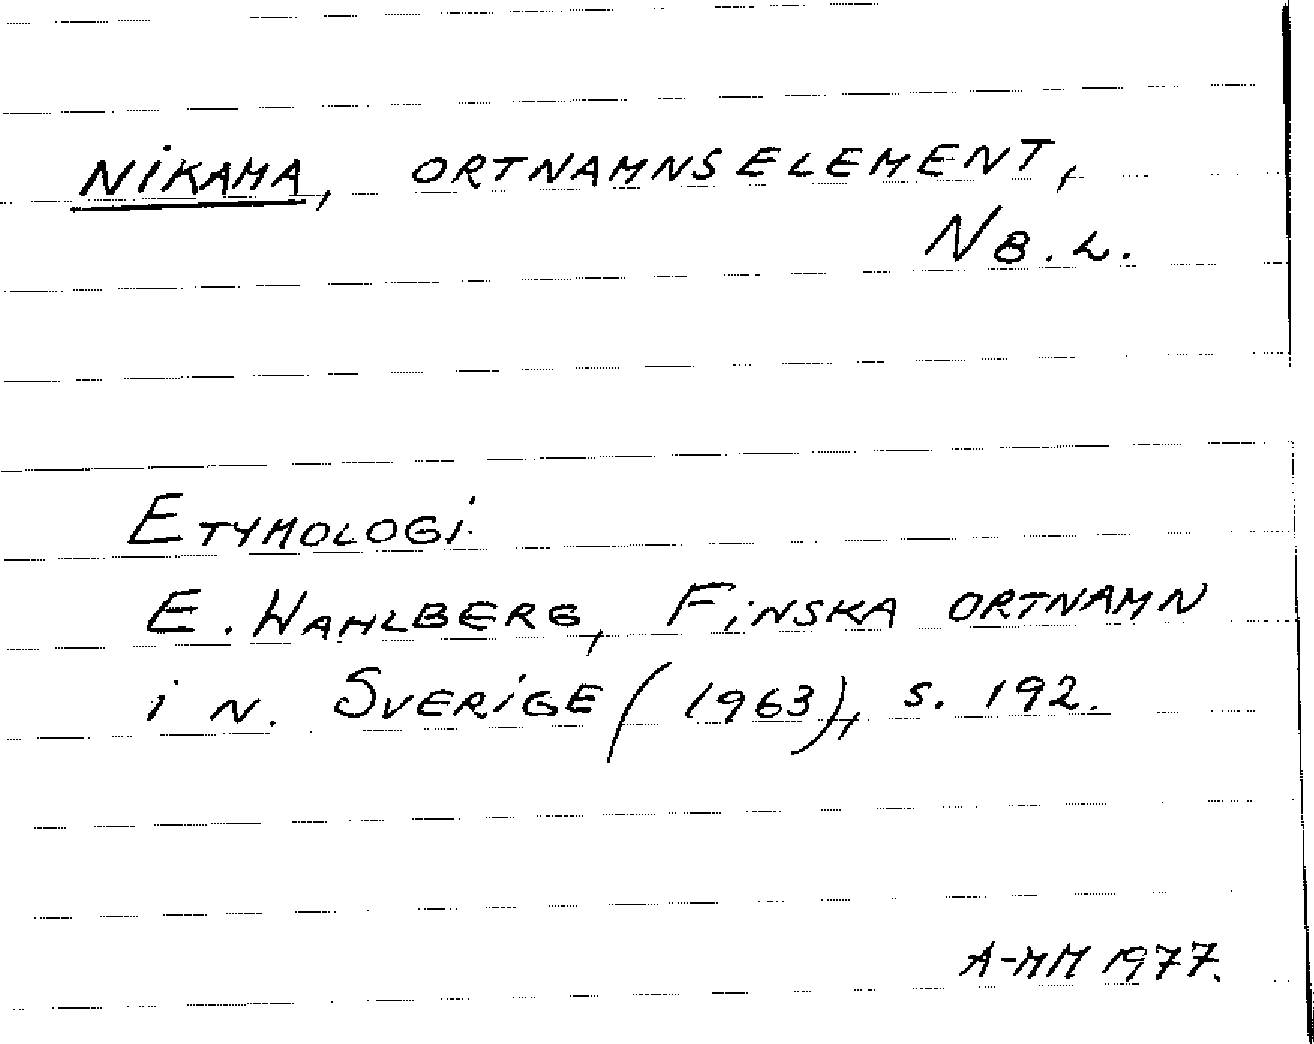 NIKAMA, ORTNAMNSELEMENT,
NB.L.
ETYMOLOGI.
E. WAHLBERG, FINSKA ORTNAMN
I N. SVERIGE (1963), S. 192.
A-MM 1977.